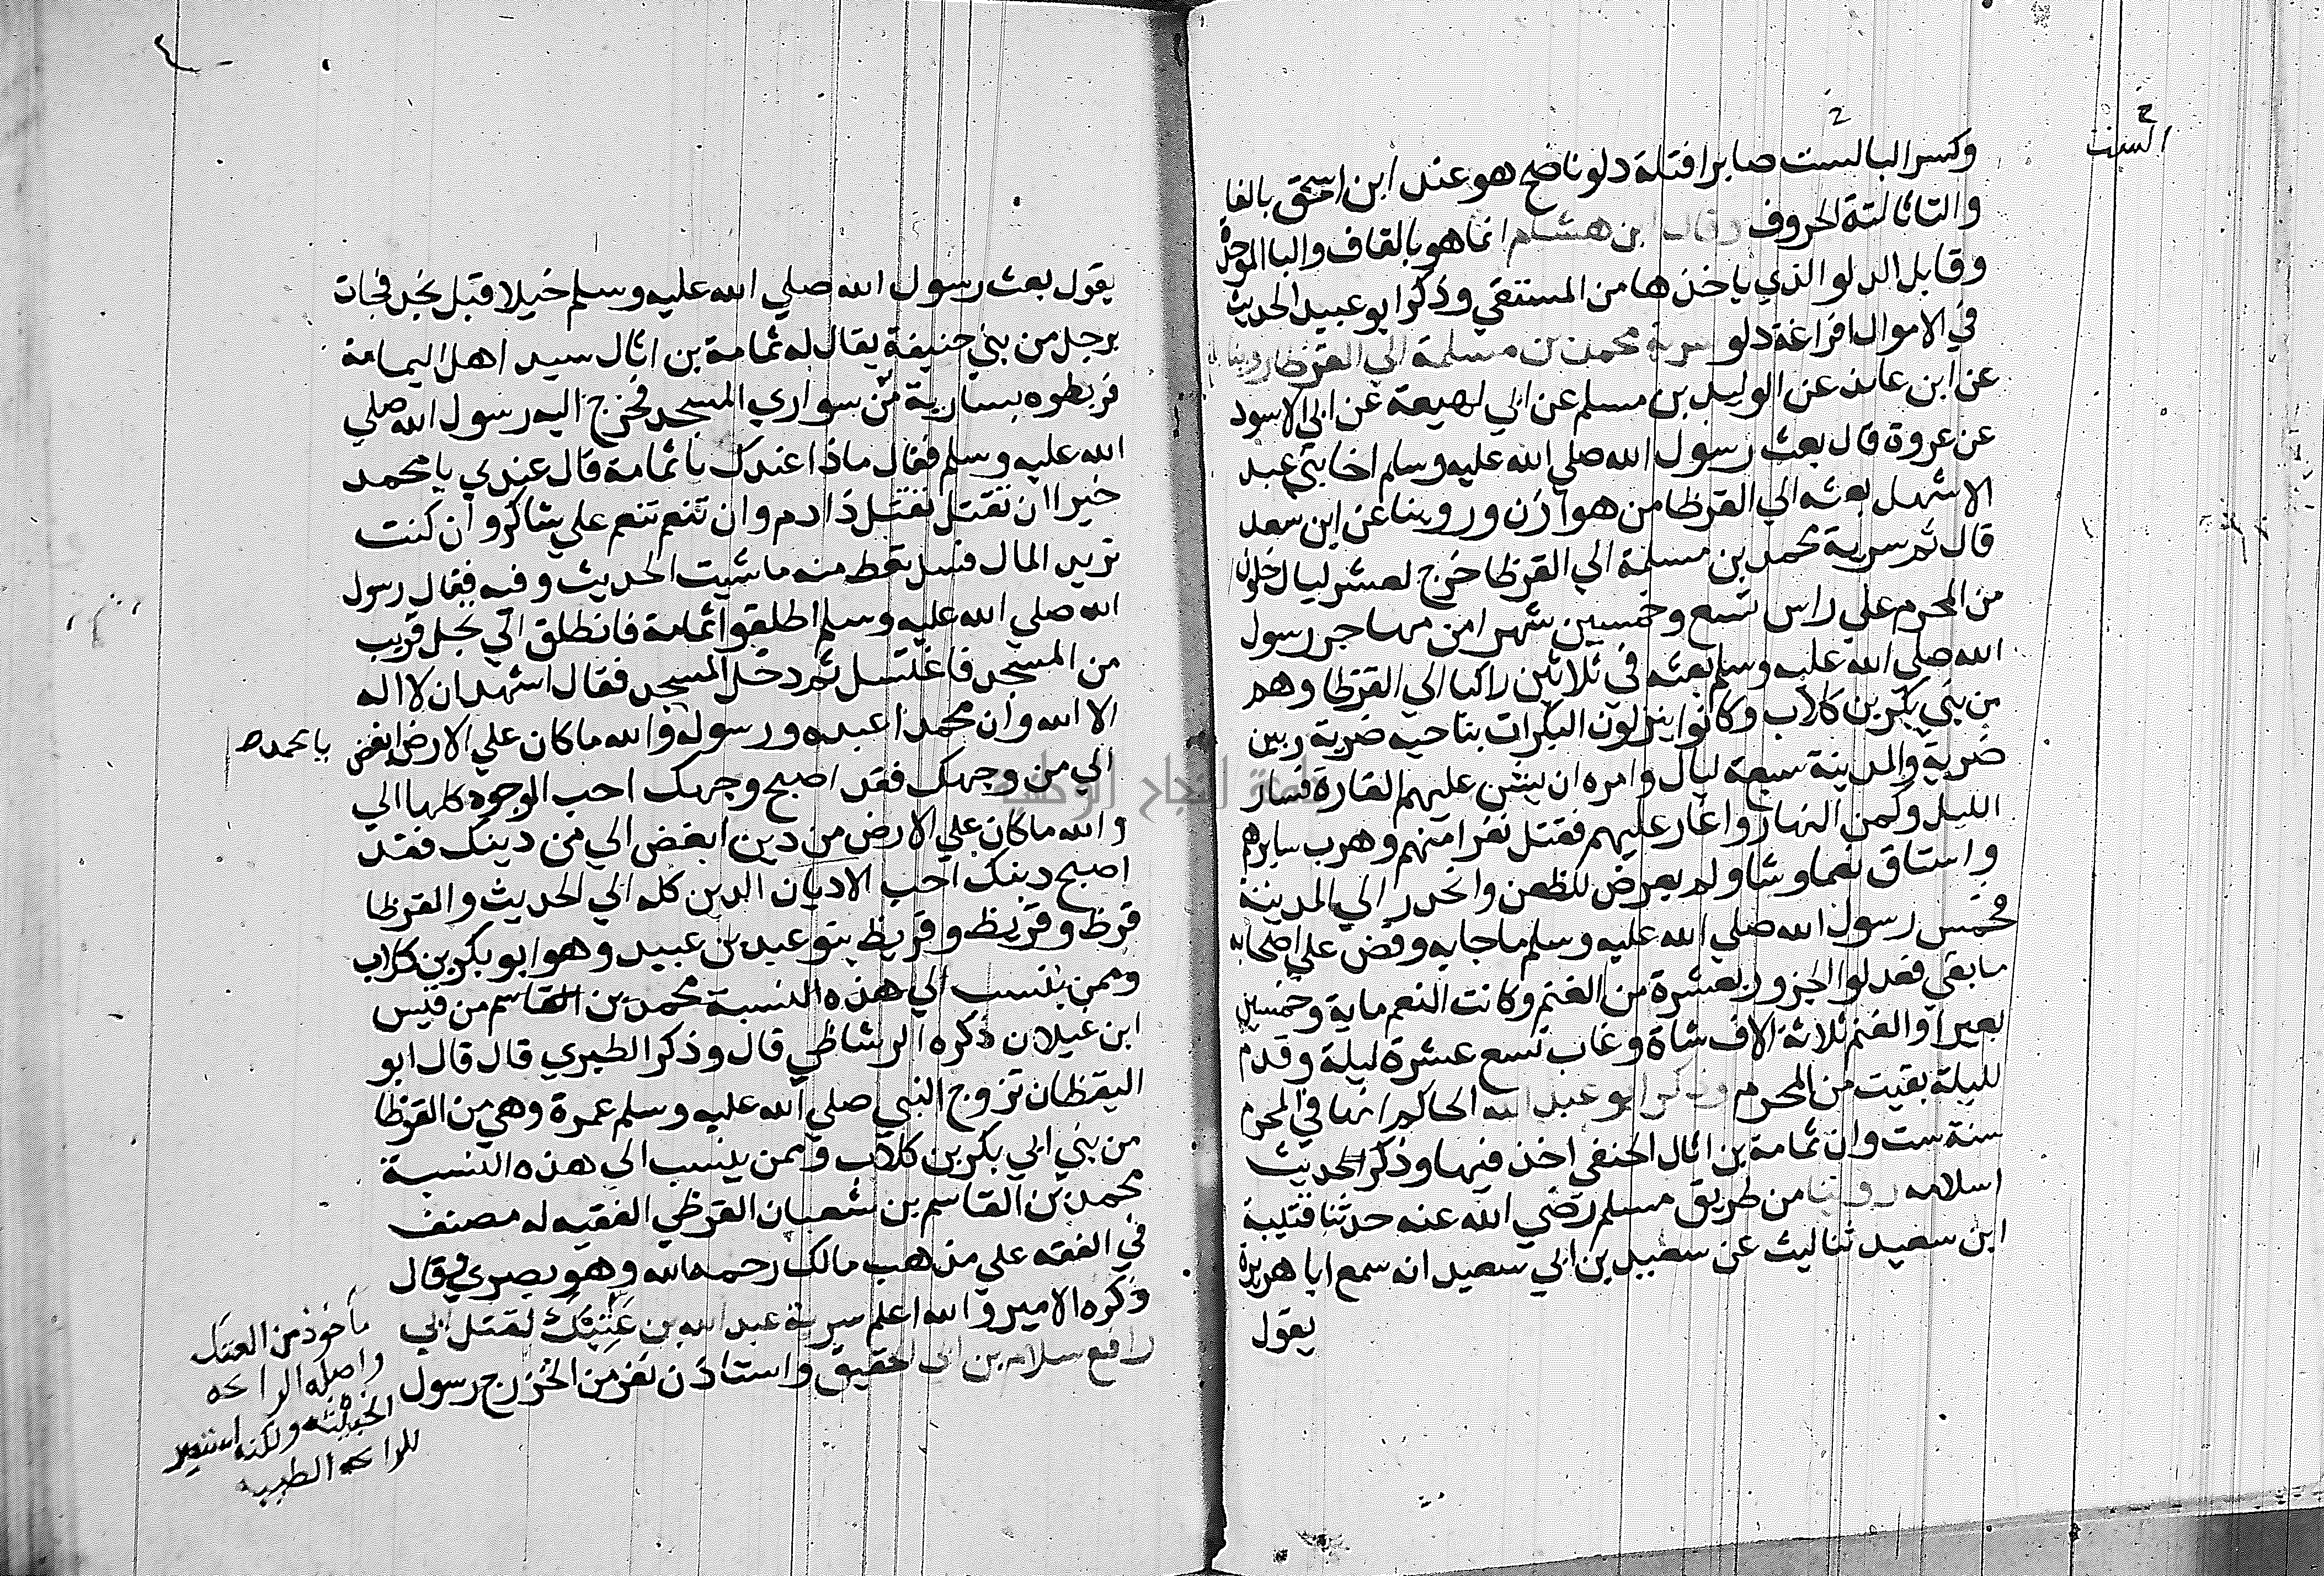 السنت
وكسر البا السنت صابرا فتلة دلو ناضح هو عند ابن اسحق بالفا
والتا ثالثة الحروف وقال ابن هشام انما هو بالقاف والبا الموحدة
وقابل الدلو الذي ياخذها من المستقي وذكر ابو عبيد الحديث
في الاموال افراغة دلو سرية محمد بن مسلمة الي القرظا روينا
عن ابن عائذ عن الوليد بن مسلم عن ابي لهيعة عن ابي الاسود
عن عروة قال بعث رسول الله صلي الله عليه وسلم اخا بني عبد
الاشهل بعثه الي القرظا من هوازن وروينا عن ابن سعد
قال ثم سرية محمد بن مسلمة الي القرظا خرج لعشر ليال خلون
من المحرم علي راس تسع وخمسين شهرا من مهاجر رسول
الله صلي الله عليه وسلم بعثه في ثلاثين راكبا الي القرظا وهم
من بني بكر بن كلاب وكانوا ينزلون البكرات بناحيه ضرية وبين
ضرية والمدينة سبعة ليال وامره ان يشن عليهم الغارة فسار
الليل وكمن النهار واغار عليهم فقتل نفرا منهم وهرب سايرهم
واستاق نعما وشا ولم يعرض للظعن وانحدر الي المدينة
فخمس رسول الله صلي الله عليه وسلم ما جا به وفض علي اصحابه
ما بقي فعدلوا الجزور بعشرة من الغنم وكانت النعم ماية وخمسين
بعيرا والغنم ثلاثة الاف شاة وغاب تسع عشرة ليلة وقدم
لليلة بقيت من المحرم وذكر ابو عبد الله الحاكم انها في المحرم
سنة ست وان ثمامة بن اثال الحنفي اخذ فيها وذكر الحديث
اسلامه روينا من طريق مسلم رضي الله عنه حدثنا قتيبة
ابن سعيد ثنا ليث عن سعيد بن ابي سعيد انه سمع ابا هريرة
يقول
يقول بعث رسول الله صلي الله عليه وسلم خيلا قبل نجد فجات
برجل من بني حنيفة يقال له ثمامة بن اثال سيد اهل اليمامة
فربطوه بسارية من سواري المسجد فخرج اليه رسول الله صلي
الله عليه وسلم فقال ماذا عندك يا ثمامة قال عندي يا محمد
خير ان تقتل تقتل ذا دم وان تنعم تنعم علي شاكر وان كنت
تريد المال فسل تعط منه ما شيت الحديث وفيه فقال رسول
الله صلي الله عليه وسلم اطلقوا ثمامة فانطلق الي نجل قريب
من المسجد فاغتسل ثم دخل المسجد فقال اشهد ان لا اله
الا الله وان محمدا عبده ورسوله والله ما كان علي الارض ابغض
يا محمد صح
الي من وجهك فقد اصبح وجهك احب الوجوه كلها الي
والله ما كان علي الارض من دين ابغض الي من دينك فقد
اصبح دينك احب الاديان الدين كله الي الحديث والقرظا
قرظ وقريظ وقريظ بنو عبد بن عبيد وهو ابو بكر بن كلاب
وممن ينسب الي هذه النسبة محمد بن القاسم من قيس
ابن عيلان ذكره الرشاطي قال وذكر الطبري قال قال ابو
اليقظان تزوج النبي صلي الله عليه وسلم عمرة وهي من القرظا
من بني ابي بكر بن كلاب وممن ينسب الي هذه النسبة
محمد بن القاسم بن شعبان القرظي الفقيه له مصنف
في الفقه علي مذهب مالك رحمه الله وهو بصري قال
وذكره الامير والله اعلم سرية عبد الله بن عَتِيك لقتل ابي
رافع سلام بن ابي الحقيق واستاذن نفر من الخزرج رسول
ماخوذ من العتك
واصله الرائحه
الخبيثه ولكنه استعير
للرائحه الطيبه